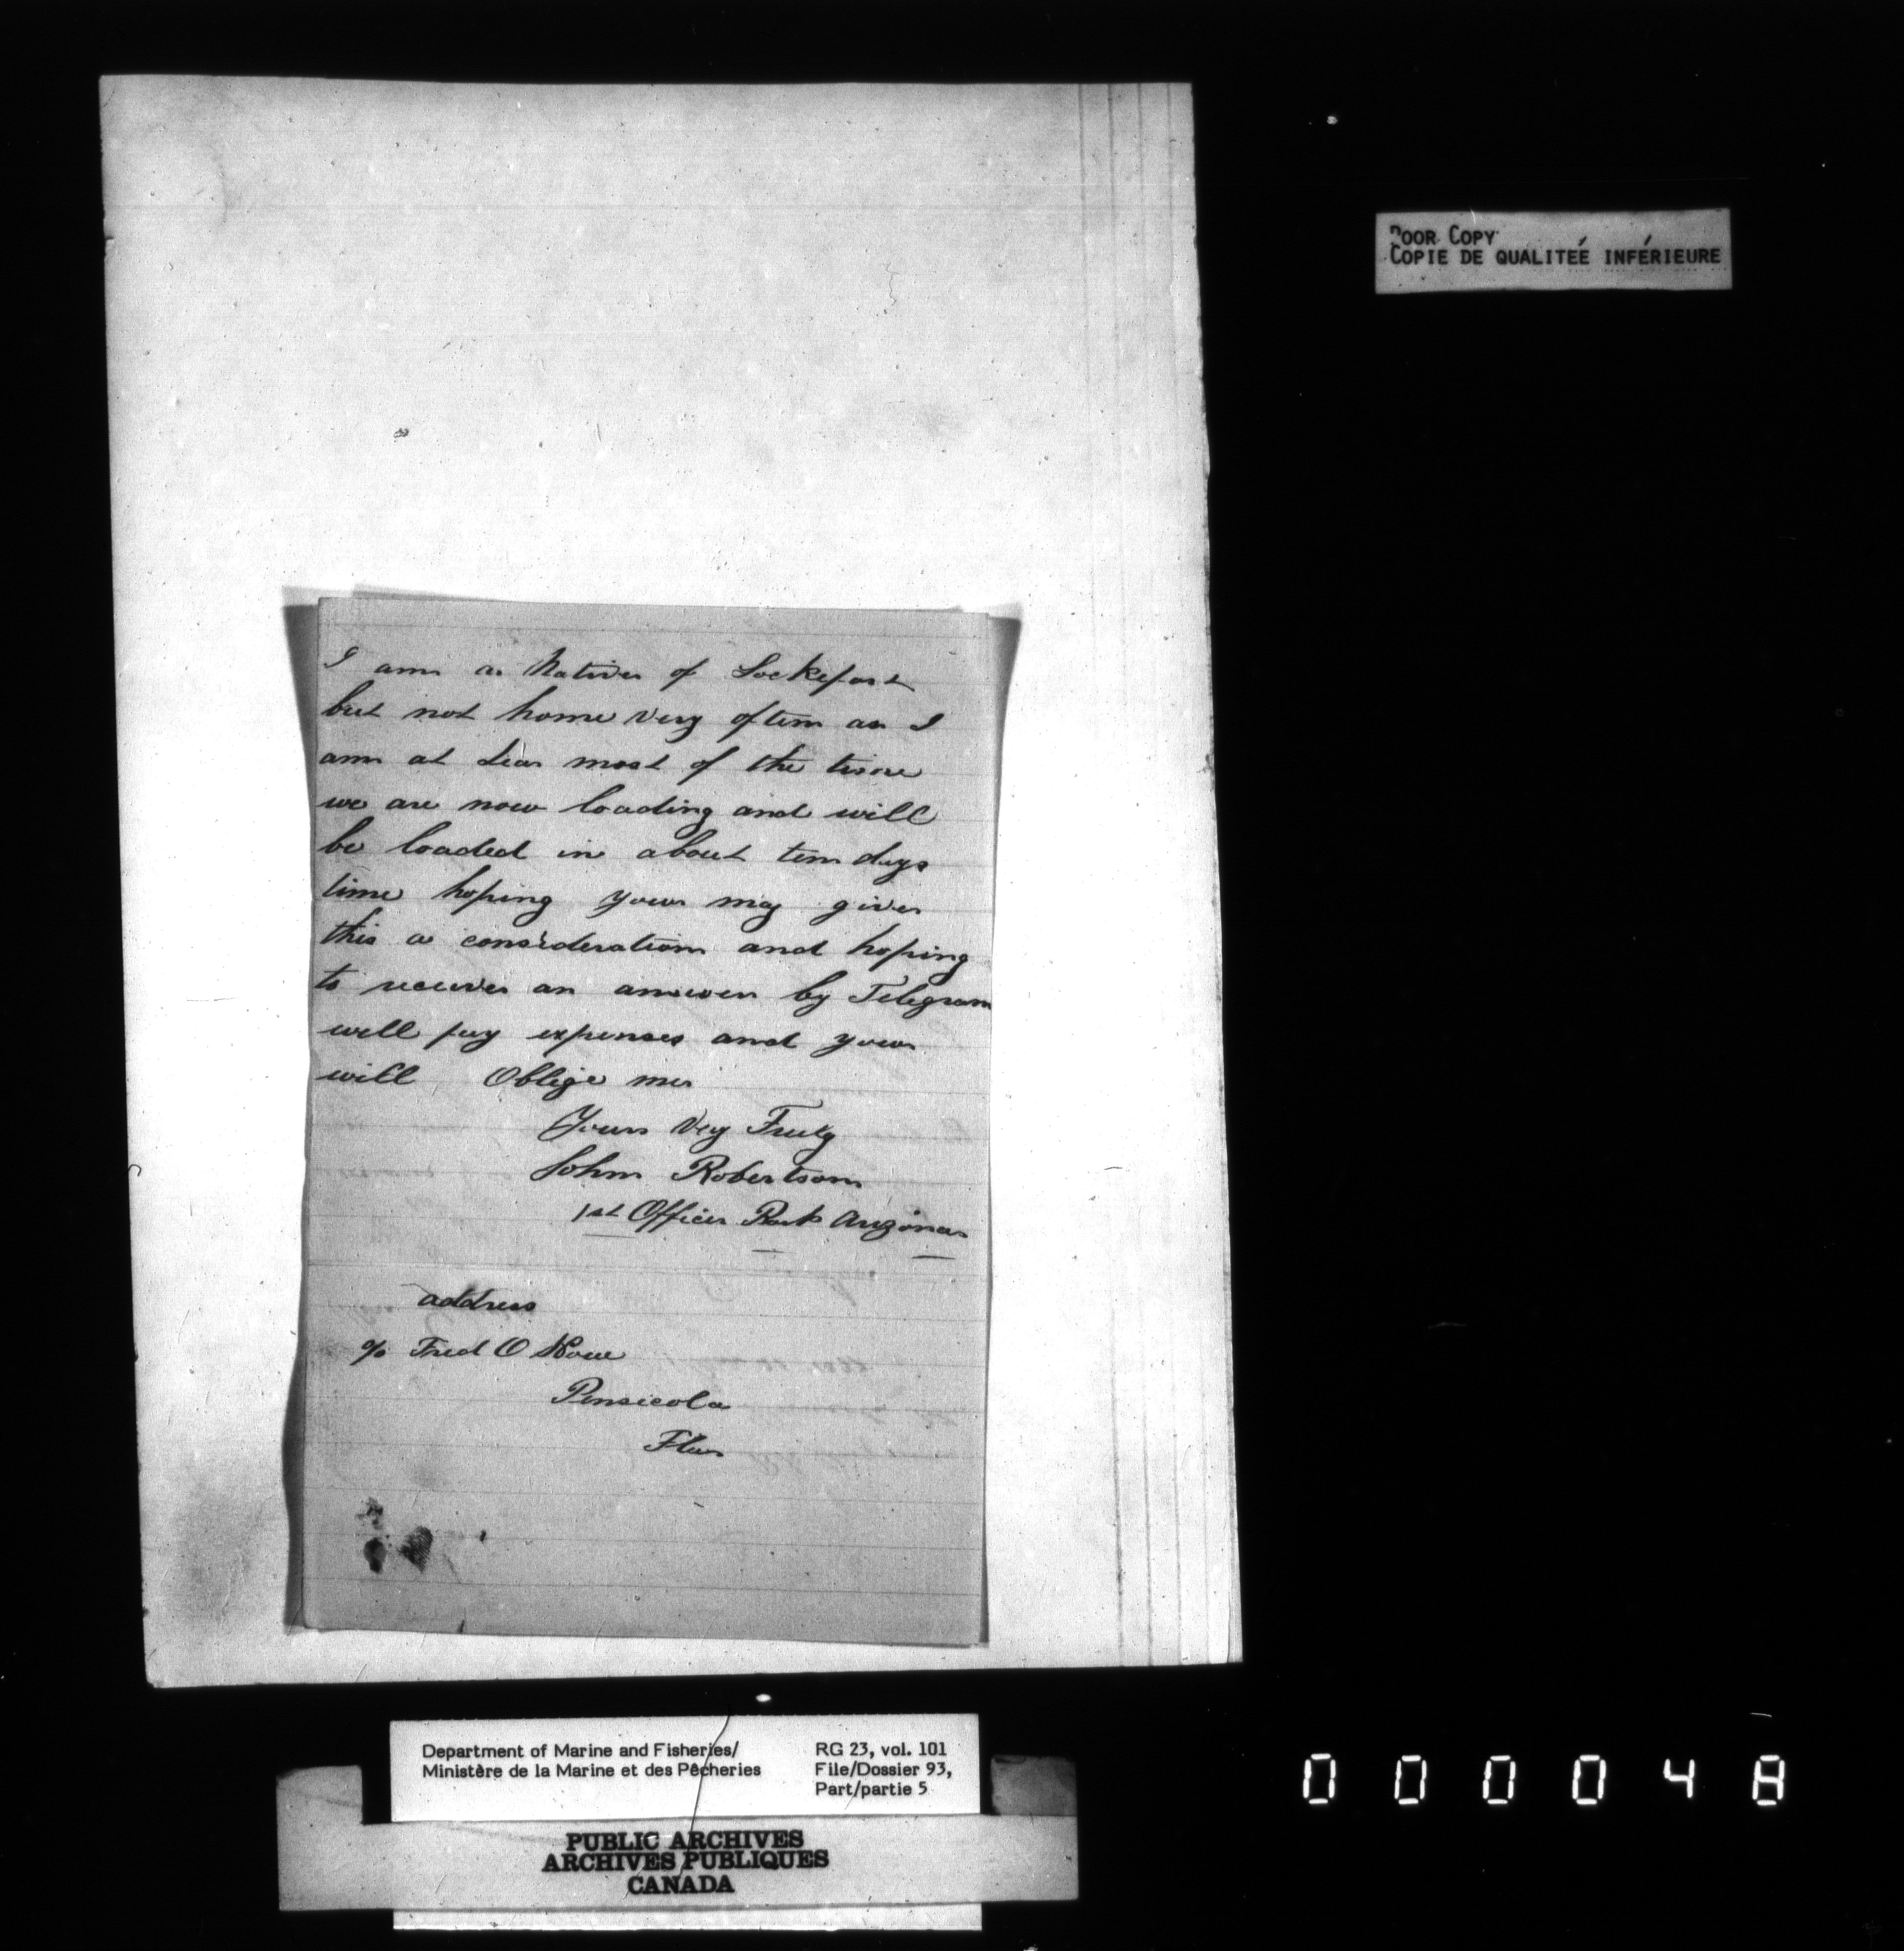 I am a Native of Lockeport
but not home very often as I
am at Sea most of the time
we are now loading and will
be loaded in about ten days
time hoping you may give
this a consideration and hoping
to receive an answer by Telegram
will pay expenses and you
will Oblige me
Yours Vey Truly
John Robertson
1st Officer Bark Arizona
address
c/o Fred O Howe
Pensicola
Fla
POOR COPY
COPIE DE QUALITEÉ INFÉRIEURE
Department of Marine and Fisheries/
Ministère de la Marine et des Pêcheries
RG 23, vol. 101
File/Dossier 93,
Part/partie 5
PUBLIC ARCHIVES
ARCHIVES PUBLIQUES
CANADA
000048